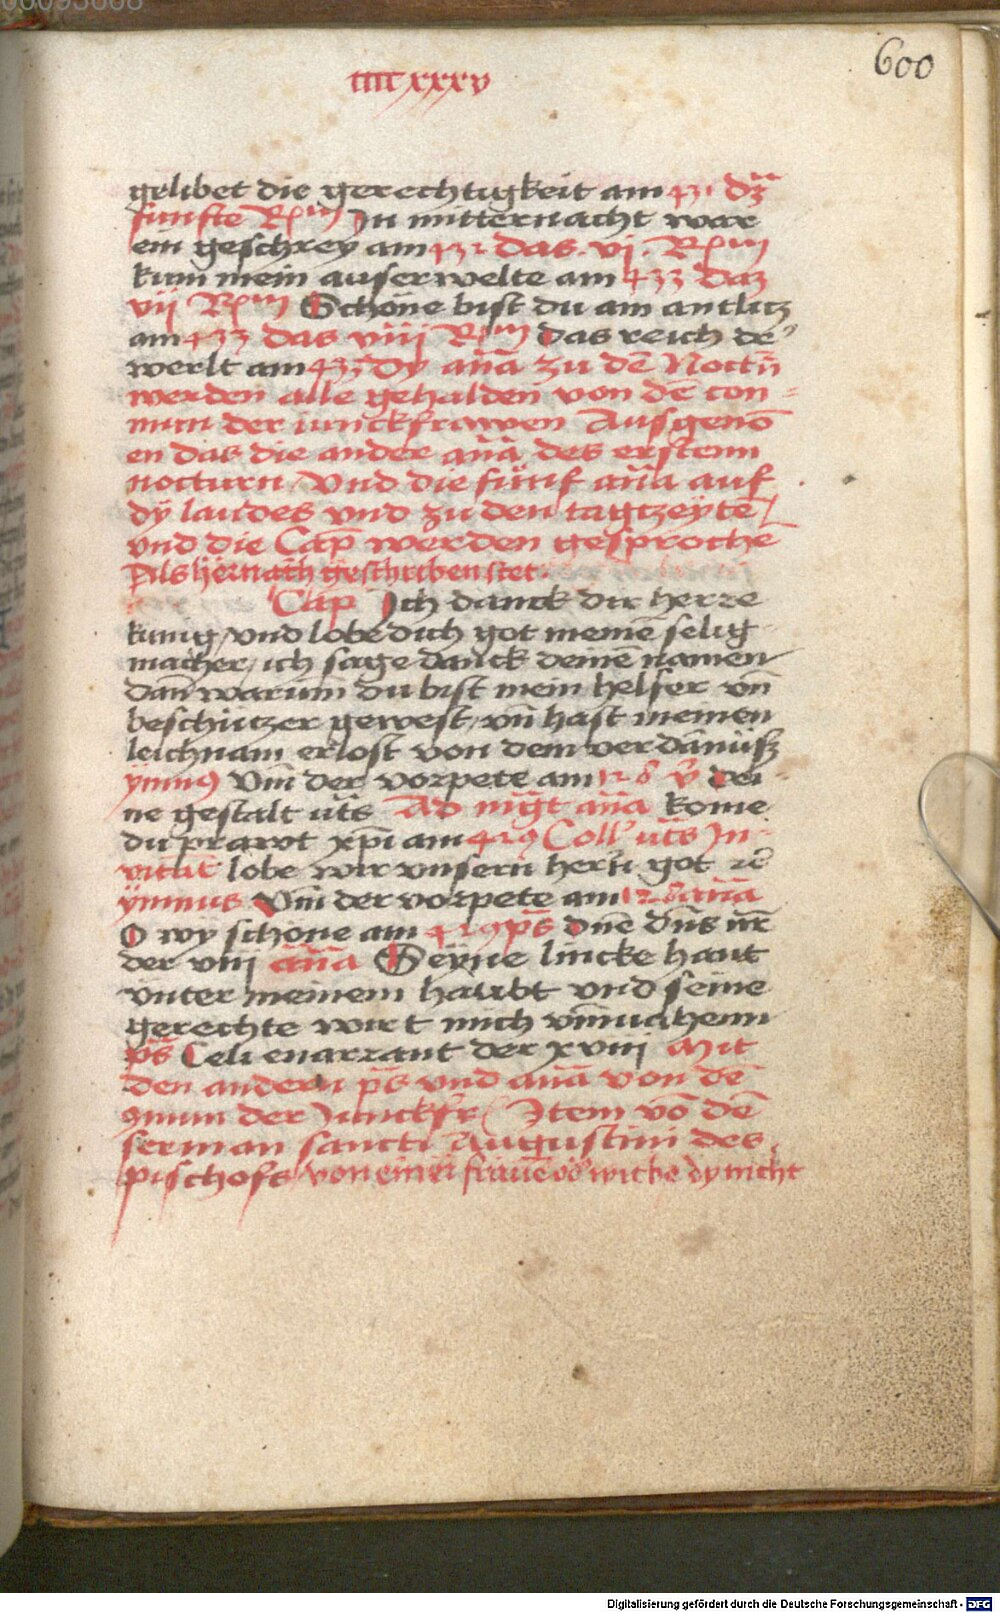 600
cccc xxxv
gelibet die gerechtigkeit am 431 dz
funfte Rm In mitternacht war
ein geschrey am 432 das . vj . Rm
kum mein auserwelte am 433 daz
vij Rm Schone bist du am antlitz
am 433 das viij Rm das reich de'
werlt am dy an̄a zu dē Noctū
werden alle gehalden von dē con-
mun der iunckfrawen Ausgenō
en das die ander an̄a des erstenn
nocturn / vnd die fünf an̄a auf
dÿ laudes vnd zu den tagtzeytē
vnd die Cap̄ werden gesprochē
Als hernach geschriben stet.
Cap̄ Ich danck dir herre
kunig / vnd lobe dich got meinē selig
macher / ich sage danck deinē namen
dan̄ warūm du bist mein helfer vn̄
beschützer gewest / vn̄ hast meinen
leichnam erlost von dem verdamnüsz
ymn9 Vm̄ der vorpete am 128 v̄ dei-
ne gestalt ut̄s Ad mg̅t an̄a kome
du prawt xp̄i am 429 Coll' ut̄s In-
vitat lobe wir vnsern hern̄ got
ymnus Vm̄ der vorpete am an̄a
O wy schone am 429 ps̄ Dn̄e dn̄s nr̄
der viij an̄a Seyne lincke hant
vnter meinem haubt vnd seine
gerechte wirt mich vmuahenn
ps̄ Celi enarrant der xviij Mit
den andern ps̄ vnd an̄a von dē
9mun der Junckfr Item vō dē
serman sancti Augustini des
pischofs von frauē witbe dy nicht
Digitalisierung gefördert durch die Deutsche Forschungsgemeinschaft - DFG